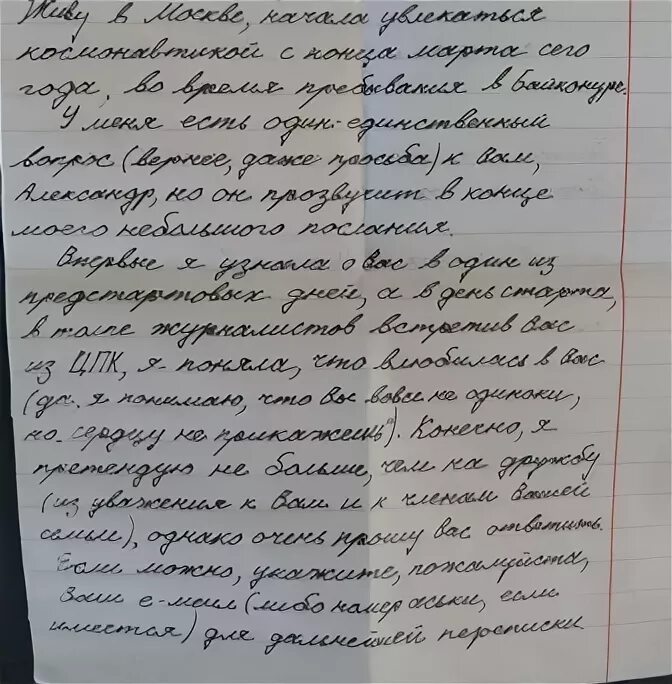 Живу в Москве, начала увлекаться
космонавтикой с конца марта сего
года, во время пребывания в Байконуре.
У меня есть один-единственный
вопрос (вернее, даже просьба) к Вам,
Александр, но он прозвучит в конце
моего небольшого послания.
Впервые я узнала о Вас в один из
предстартовых дней, а в день старта,
в толпе журналистов встретив Вас
из ЦПК, я поняла, что влюбилась в Вас
(да, я понимаю, что Вы вовсе не одиноки,
но „сердцу не прикажешь"). Конечно, я
претендую не больше, чем на дружбу
(из уважения к Вам и к членам Вашей
семьи), однако очень прошу Вас ответить.
Если можно, укажите, пожалуйста,
Ваш е-меил (либо номер аськи, если
имеется) для дальнейшей переписки